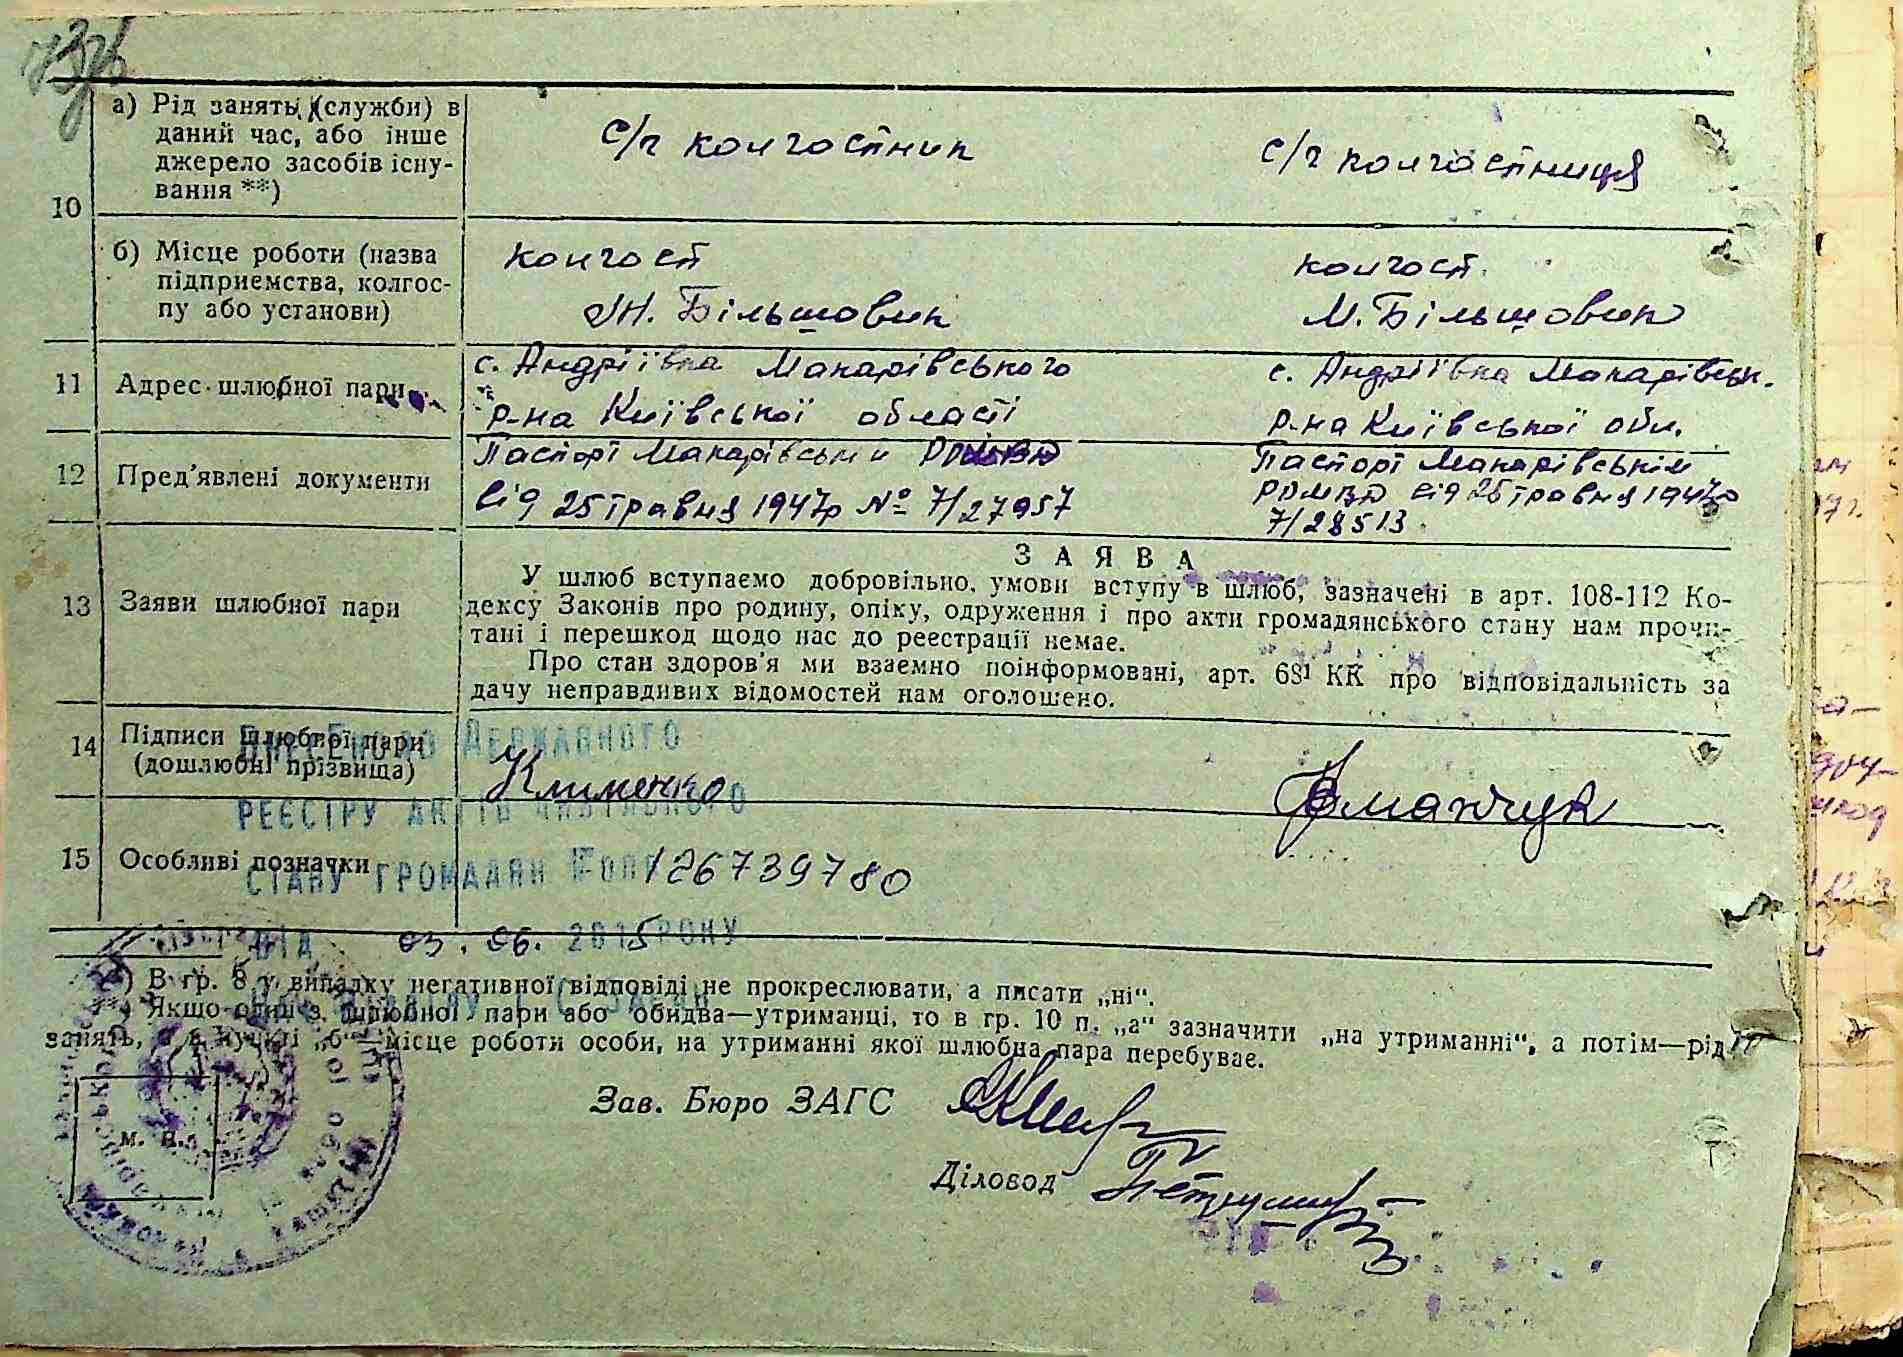 а) Рід занять (служби) в
даний час, або інше
джерело засобів існу-
вання **)
с/г колгоспник
с/г колгоспниця
10
б) Місце роботи (назва
підприємства, колгос-
пу або установи)
колгосп
М. Більшовик
колгосп
М. Більшовик
11 Адрес шлюбної пари
с. Андріївка Макарівського
р-на Київської області
с. Андріївка Макарівськ.
р-на Київської обл.
12 Пред'явлені документи
Паспорт Макарівськи
від 25 травня 1947р № 7/27957
Паспорт Макарівським
РОМВД від 25 травня 1947р
7/28513
13 Заяви шлюбної пари
ЗАЯВА
У шлюб вступаємо добровільно, умови вступу в шлюб, зазначені в арт. 108-112 Ко-
дексу Законів про родину, опіку, одруження і про акти громадянського стану нам прочи-
тані і перешкод щодо нас до реєстрації немає.
Про стан здоров'я ми взаємно поінформовані, арт. 68¹ КК про відповідальність за
дачу неправдивих відомостей нам оголошено.
14 Підписи шлюбної пари
(дошлюбні прізвища)
Клименко
15 Особливі позначки
Державного
реєстру актів
стану громадян
126739780
від 03. 06. 2015 року
*) В гр. 8 у випадку негативної відповіді не прокреслювати, а писати „ні“.
**) Якщо один з шлюбної пари або обидва—утриманці, то в гр. 10 п. „а“ зазначити „на утриманні“, а потім—рід
занять, а в пункті „б“—місце роботи особи, на утриманні якої шлюбна пара перебуває.
м. п.
Зав. Бюро ЗАГС
Діловод